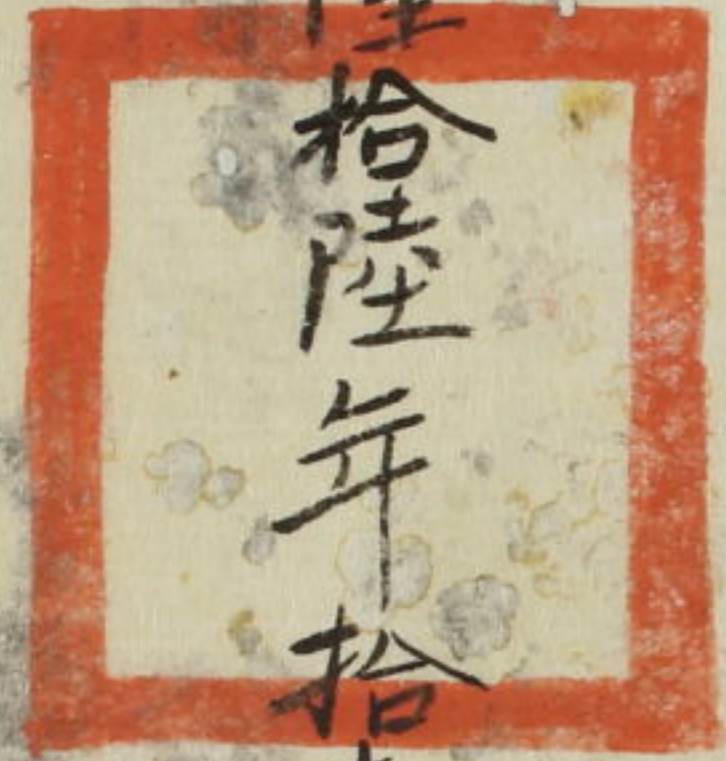 拾陸年拾